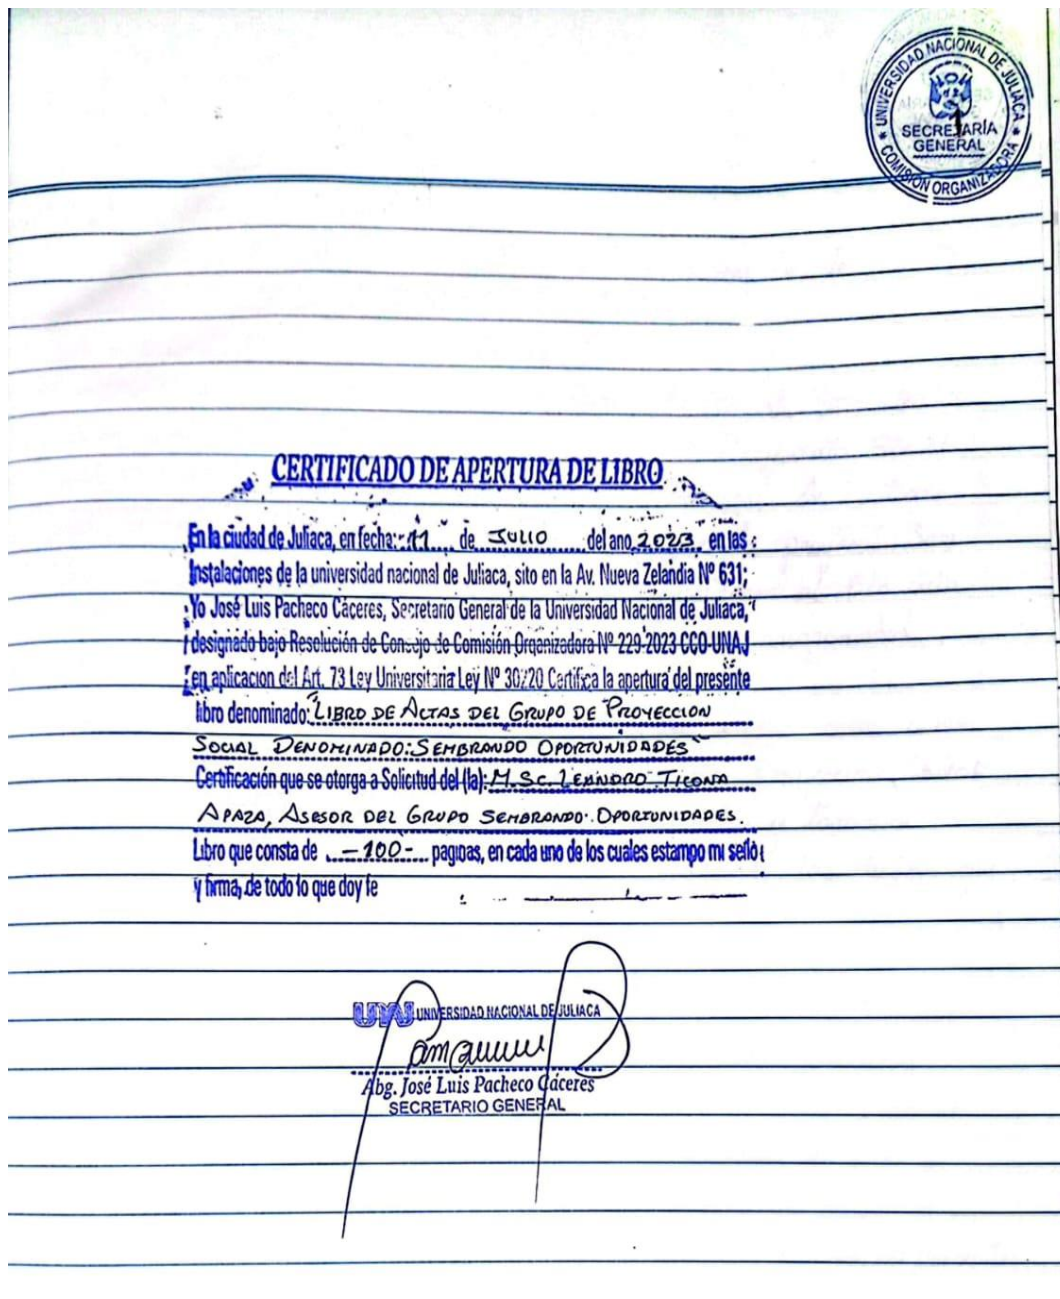 UNIVERSIDAD NACIONAL DE JULIACA
1
SECRETARÍA
GENERAL
* COMISIÓN ORGANIZADORA *
CERTIFICADO DE APERTURA DE LIBRO
En la ciudad de Juliaca, en fecha: 11 de JULIO del ano 2023 en las
Instalaciones de la universidad nacional de Juliaca, sito en la Av. Nueva Zelandia Nº 631;
Yo José Luis Pacheco Cáceres, Secretario General de la Universidad Nacional de Juliaca,
designado bajo Resolución de Consejo de Comisión Organizadora Nº 229-2023 CCO-UNAJ
en aplicacion del Art. 73 Ley Universitaria Ley Nº 30220 Certifica la apertura del presente
libro denominado: "LIBRO DE ACTAS DEL GRUPO DE PROYECCION
SOCIAL DENOMINADO: SEMBRANDO OPORTUNIDADES"
Certificación que se otorga a Solicitud del (la): M.Sc. LEANDRO TICONA
APAZA, ASESOR DEL GRUPO SEMBRANDO OPORTUNIDADES.
Libro que consta de -100- paginas, en cada uno de los cuales estampo mi sello
y firma, de todo lo que doy fe
UNAJ UNIVERSIDAD NACIONAL DE JULIACA
Abg. José Luis Pacheco Cáceres
SECRETARIO GENERAL